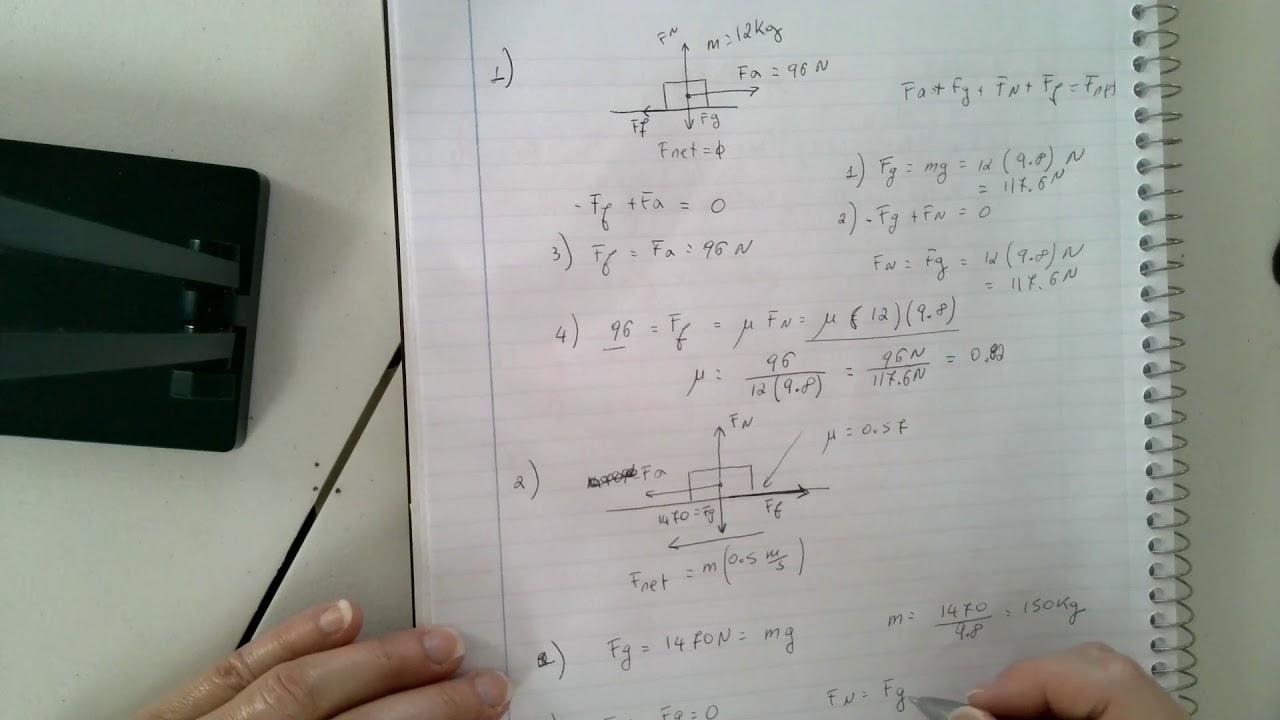 1)
FN
m = 12Kg
Fa = 96 N
Ff
Fg
Fnet = ϕ
Fa + Fg + FN + Ff = Fnet
1) Fg = mg = 12 (9.8) N
= 117.6N
- Ff + Fa = 0
2) -Fg + FN = 0
3) Ff = Fa = 96 N
FN = Fg = 12 (9.8) N
= 117.6N
4) 96 = Ff = μ FN = μ (12)(9.8)
μ = 96 / 12(9.8) = 96N / 117.6N = 0.82
2)
FN
μ = 0.57
Fa
1470 = Fg
Ff
Fnet = m (0.5 m/s)
Fg = 1470N = mg
m = 1470 / 9.8 = 150Kg
FN = Fg
Fg = 0